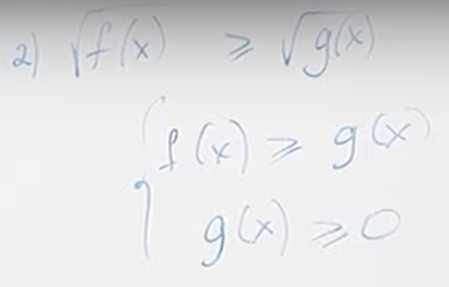 2) √f(x) ⩾ √g(x)
{ f(x) ⩾ g(x)
g(x) ⩾ 0